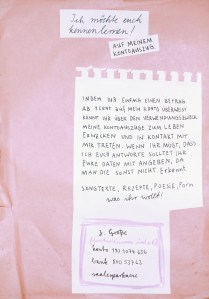 Ich möchte euch
kennenlernen!
AUF MEINEM
KONTOAUSZUG.
INDEM IHR EINFACH EINEN BETRAG
AB 1 CENT AUF MEIN KONTO ÜBERWEIST
KÖNNT IHR ÜBER DEN VERWENDUNGSZWECK
MEINE KONTOAUSZÜGE ZUM LEBEN
ERWECKEN UND IN KONTAKT MIT
MIR TRETEN. WENN IHR MÖGT, DASS
ICH EUCH ANTWORTE SOLLTET IHR
EURE DATEN MIT ANGEBEN, DA
MAN DIE SONST NICHT ERKENNT.
SONGTEXTE, REZEPTE, POESIE, Porn
was ihr wollt!
konto
saalesparkasse